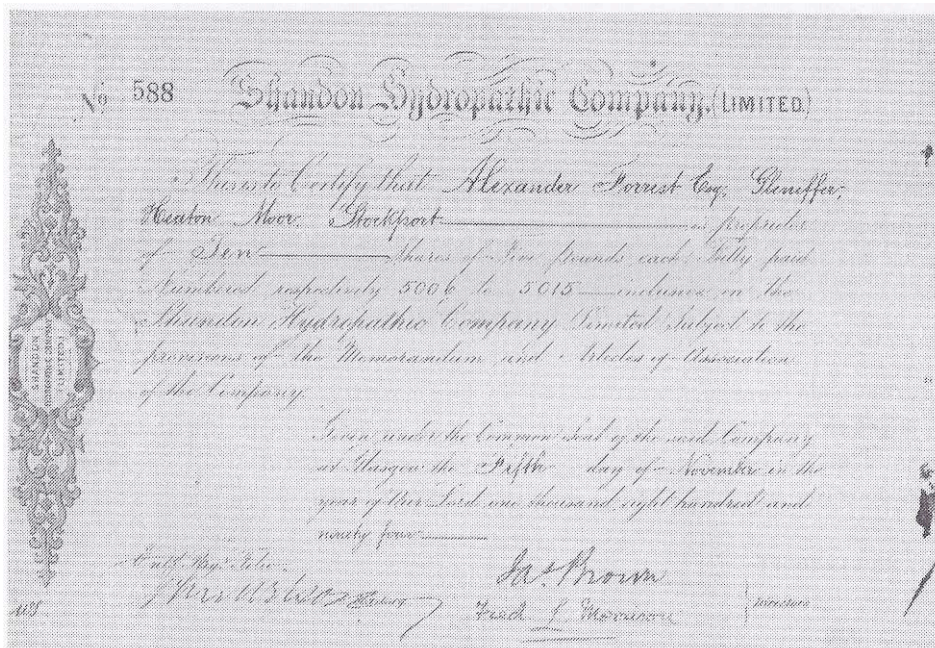 No 588 Shandon Hydropathic Company. (LIMITED)
This is to Certify that Alexander Forrest Esq. Gleniffer,
Heaton Moor, Stockport is proprietor
of Ten Shares of Five pounds each fully paid
Numbered respectively 5006 to 5015 inclusive in the
Shandon Hydropathic Company Limited Subject to the
provisions of the Memorandum and Articles of Association
of the Company.
SHANDON
HYDROPATHIC COMPANY
(LIMITED)
Given under the Common Seal of the said Company
at Glasgow the Fifth day of November in the
year of Our Lord one thousand eight hundred and
ninety four
Jas. Brown
Fred L. Morrison
Directors